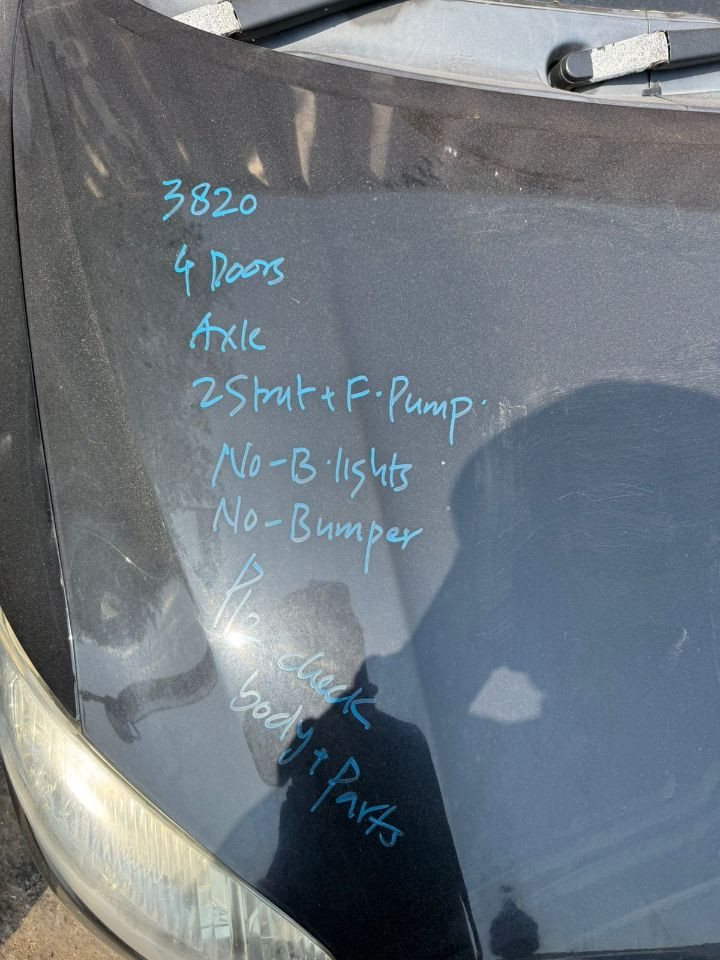 3820
4 Doors
Axle
2 Strut + F. Pump.
No-B.lights
No-Bumper
Plz check
body + Parts